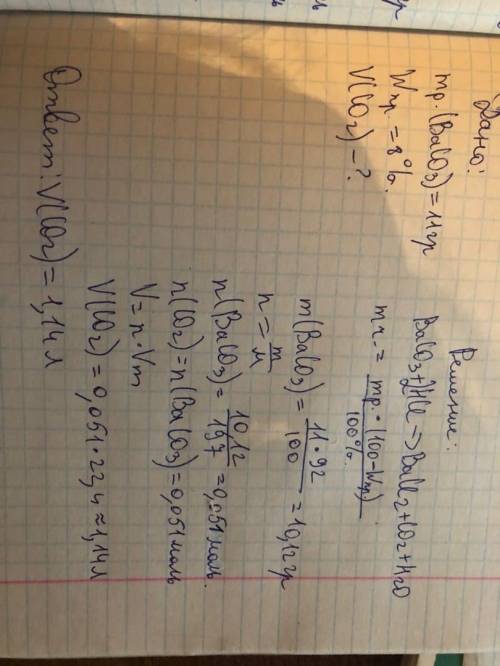 Дано:
mр. (BaCO3) = 11 гр
Wпр. = 8%.
V(CO2) - ?
Решение:
BaCO3 + 2HCl -> BaCl2 + CO2 + H2O
mч. = mр. • (100 - Wпр) / 100%.
m(BaCO3) = 11 • 92 / 100 = 10,12 гр
n = m / M
n(BaCO3) = 10,12 / 197 = 0,051 моль.
n(CO2) = n(BaCO3) = 0,051 моль
V = n • Vm
V(CO2) = 0,051 • 22,4 ≈ 1,14 л
Ответ: V(CO2) = 1,14 л